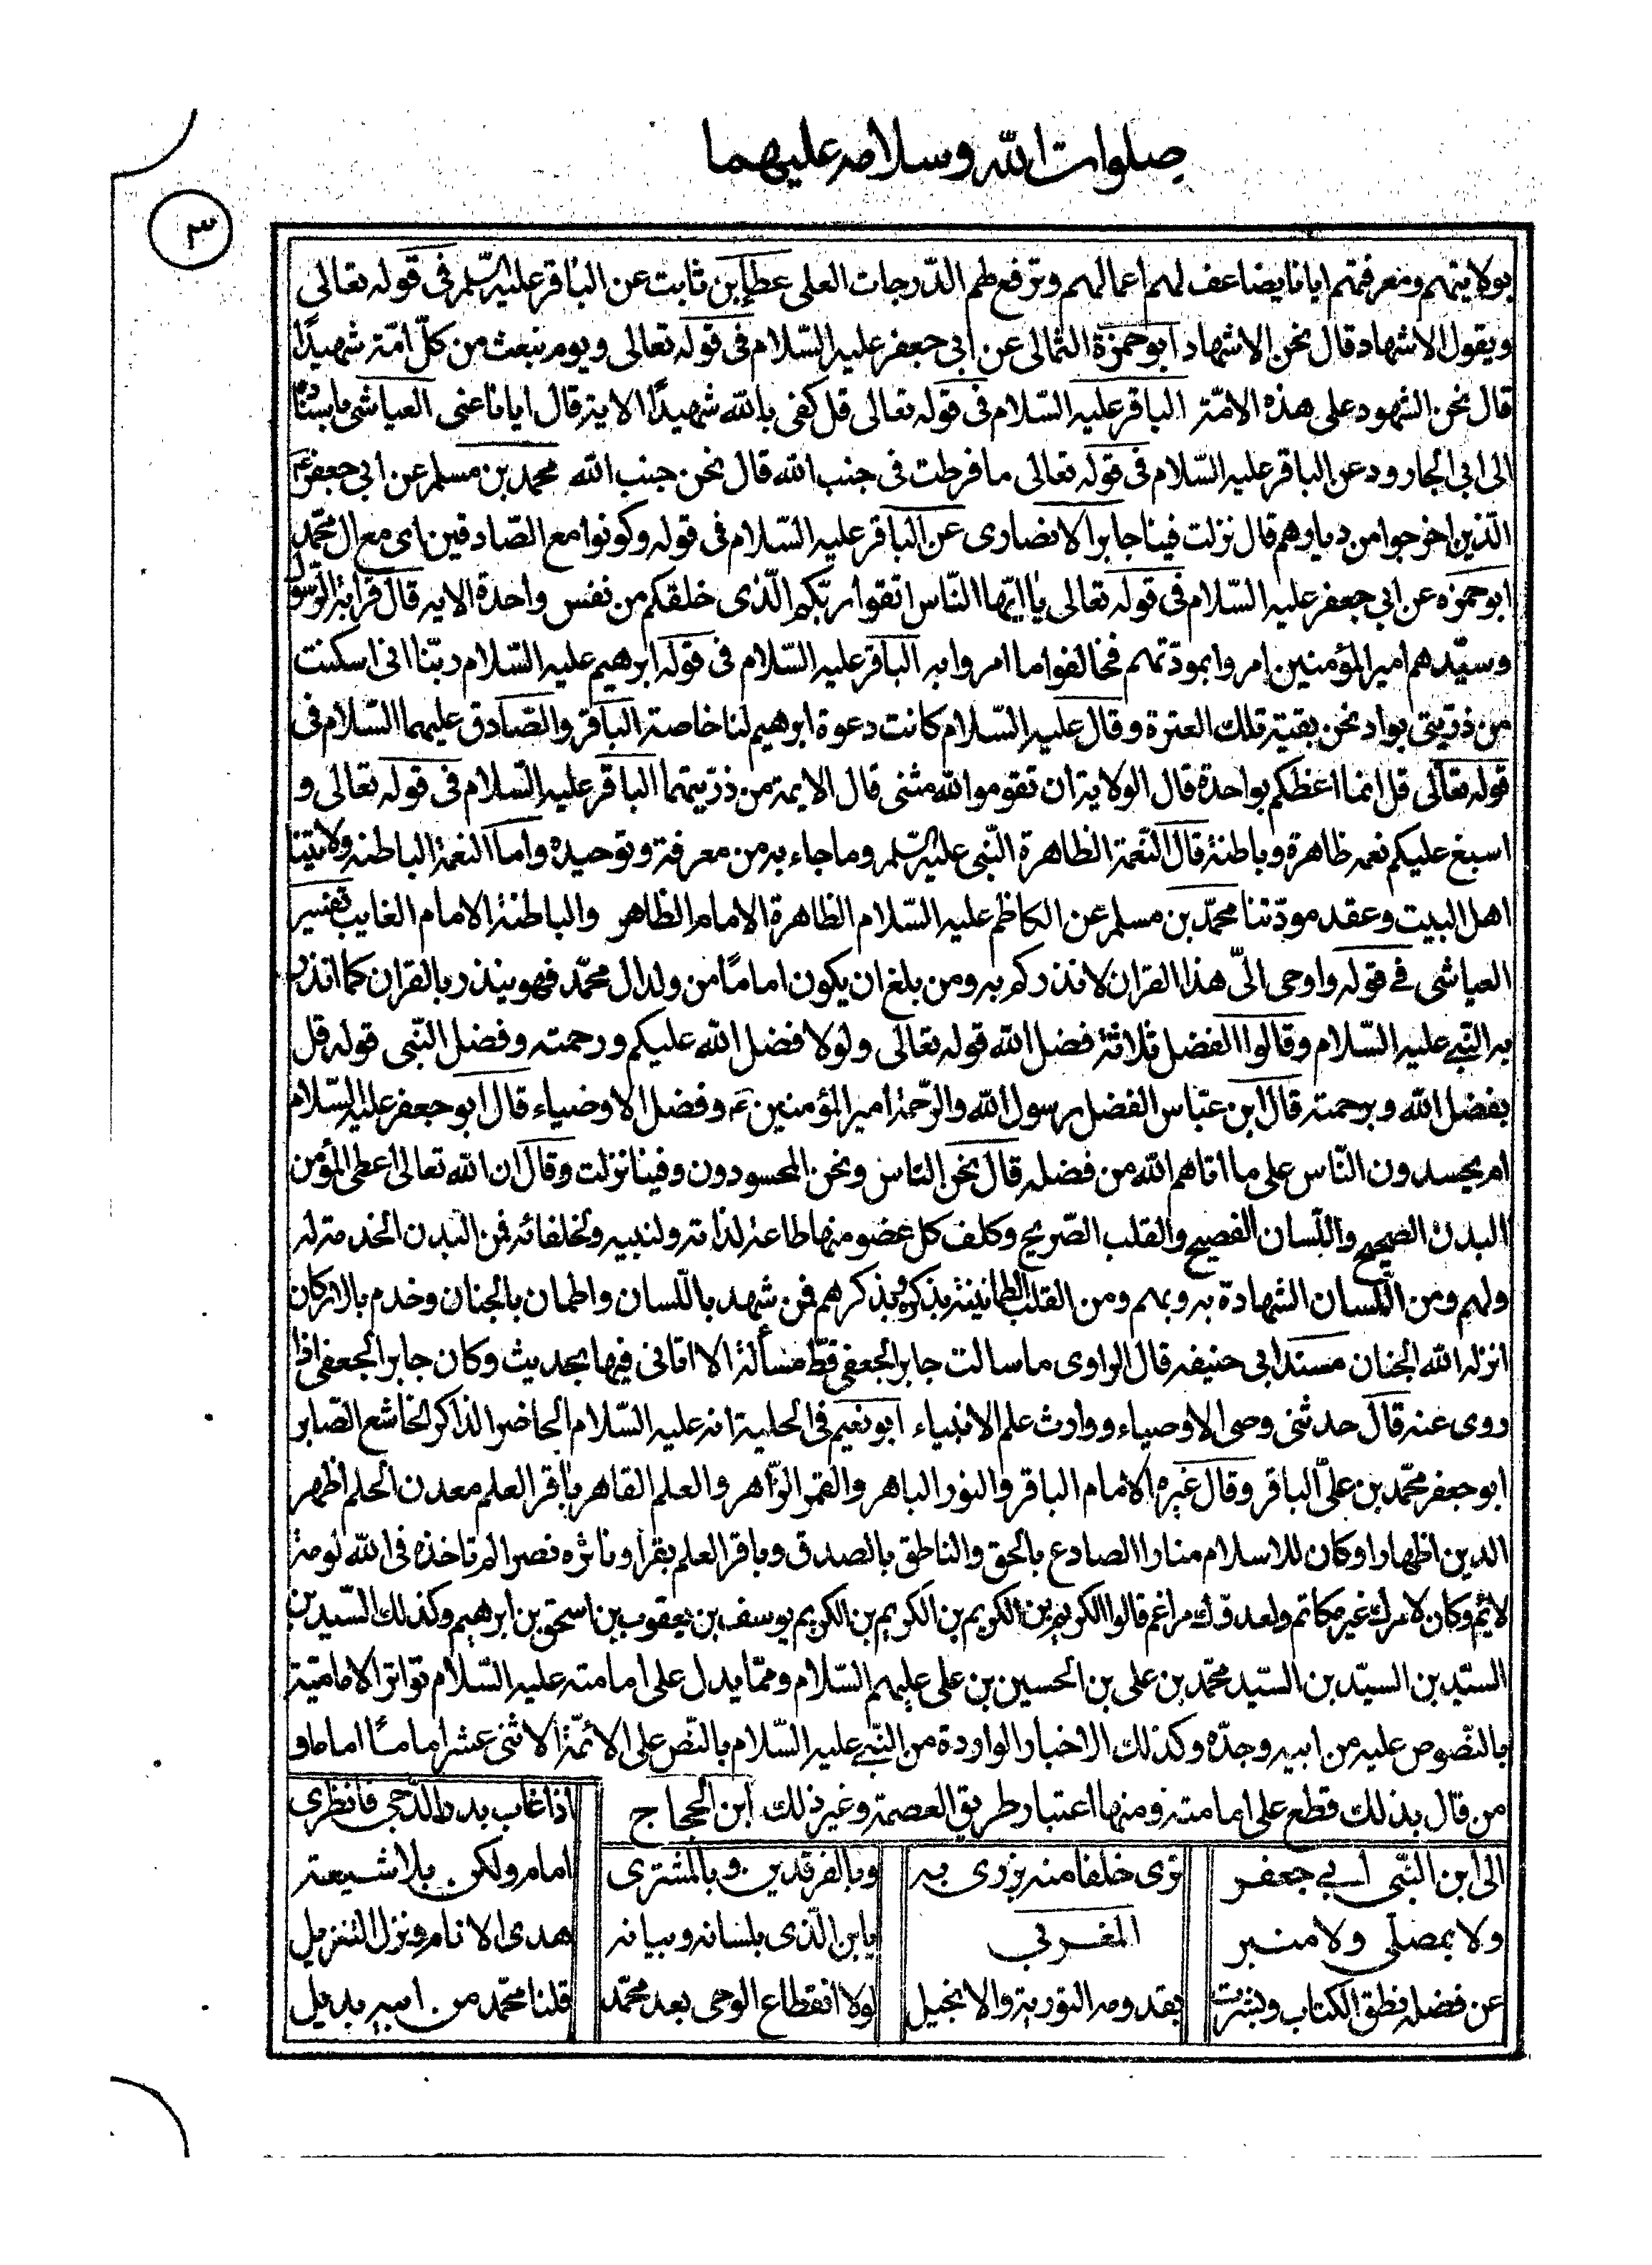 صلوات الله وسلامه عليهما
٣
بولايتهم ومعرفتهم ايانا يضاعف لهم اعمالهم وترفع لهم الدّرجات العلى عطاء بن ثابت عن الباقر عليه السّلم فى قوله تعالى
ويقول الاشهاد قال نحن الاشهاد ابو حمزة الثمالى عن ابى جعفر عليه السّلام فى قوله تعالى ويوم نبعث من كلّ امّة شهيدًا
قال نحن الشهود على هذه الامّة الباقر عليه السّلام فى قوله تعالى قل كفى بالله شهيدًا الاية قال ايانا عنى العياشى باسناده
الى ابى الجارود عن الباقر عليه السّلام فى قوله تعالى ما فرطت فى جنب الله قال نحن جنب الله محمد بن مسلم عن ابى جعفر ع
الّذين اخرجوا من ديارهم قال نزلت فينا جابر الانصارى عن الباقر عليه السّلام فى قوله وكونوا مع الصّادقين اى مع ال محمّد
ابو حمزه عن ابى جعفر عليه السّلام فى قوله تعالى يا ايّها النّاس اتقوا ربّكم الّذى خلقكم من نفس واحدة الايه قال قرابة الرّسول
وسيّدهم امير المؤمنين امروا بمودّتهم فخالفوا ما امروا به الباقر عليه السّلام فى قوله ابرهيم عليه السّلام ربّنا انى اسكنت
من ذرّيتى بواد نحن بقية تلك العترة وقال عليه السّلام كانت دعوة ابرهيم لنا خاصة الباقر والصّادق عليهما السّلام فى
قوله تعالى قل انما اعظكم بواحدة قال الولاية ان تقوموا لله مثنى قال الايمة من ذرّيتهما الباقر عليه السّلام فى قوله تعالى و
اسبغ عليكم نعمه ظاهرة وباطنة قال النّعمة الظاهرة النّبى عليه السّلم وما جاء به من معرفة وتوحيده واما النعمة الباطنه ولايتنا
اهل البيت وعقد مودّتنا محمّد بن مسلم عن الكاظم عليه السّلام الظاهرة الامام الظاهر والباطنة الامام الغايب تفسير
العياشى فى قوله واوحى الىّ هذا القران لانذركم به ومن بلغ ان يكون امامًا من ولد ال محمّد فهو ينذر بالقران كما انذر
به النّبى عليه السّلام وقالوا الفضل ثلاثة فضل الله قوله تعالى ولولا فضل الله عليكم ورحمته وفضل النّبى قوله قل
بفضل الله وبرحمته قال ابن عبّاس الفضل رسول الله والرّحمة امير المؤمنين ع وفضل الاوصياء قال ابو جعفر عليه السّلام
ام يحسدون النّاس على ما اتاهم الله من فضله قال نحن الناس ونحن المحسودون وفينا نزلت وقال ان الله تعالى اعطى المؤمن
البدن الصحيح واللّسان الفصيح والقلب الصّريح وكلف كل عضو منها طاعة لذاته ولنبيه ولخلفائه فمن البدن الخدمة له
ولهم ومن اللسان الشهادة به وبهم ومن القلب الطمانينة بذكره وبذكرهم فمن شهد باللّسان واطمان بالجنان وخدم بالاركان
انزله الله الجنان مسند ابى حنيفه قال الراوى ما سالت جابر الجعفى قطّ مسألة الا اتانى فيها بحديث وكان جابر الجعفى اذا
روى عنه قال حدثنى وصى الاوصياء ووارث علم الانبياء ابو نعيم فى الحلية انه عليه السّلام الحاضر الذاكر الخاشع الصّابر
ابو جعفر محمّد بن علىّ الباقر وقال غيره الامام الباقر والنور الباهر والقمر الزّاهر والعلم القاهر باقر العلم معدن الحلم اظهر
الدين اظهارا وكان للاسلام منارا الصادع بالحق والناطق بالصدق وباقر العلم بقرا وناثره نصرا لم تاخذه فى الله لومة
لائم وكان لامره غير مكاتم ولعدوّه مراغم قالوا الكريم بن الكريم بن الكريم بن الكريم يوسف بن يعقوب بن اسحق بن ابرهيم وكذلك السّيد بن
السيّد بن السيّد بن السيّد محمّد بن على بن الحسين بن على عليهم السّلام وممّا يدل على امامته عليه السّلام تواتر الامامّية
بالنّصوص عليه من ابيه وجدّه وكذلك الاخبار الواردة من النّبى عليه السّلام بالنّص على الائمّة الاثنى عشر امامًا اماما و
من قال بذلك قطع على امامته ومنها اعتبار طريق العصمة وغير ذلك ابن الحجاج اذا غاب بدر الدّجى فانظرى
الى ابن النّبى أبى جعفر ترى خلفا منه يزرى به وبالفرقدين وبالمشترى امام ولكن بلا شيعته
ولا بمصلّى ولا منبر المغربى يا بن الّذى بلسانه وبيانه هدى الانام ونزل التنزيل
عن فضله نطق الكتاب وبشرت بقدومه التورية والانجيل لولا انقطاع الوحى بعد محمّد قلنا محمّد من ابيه بديل